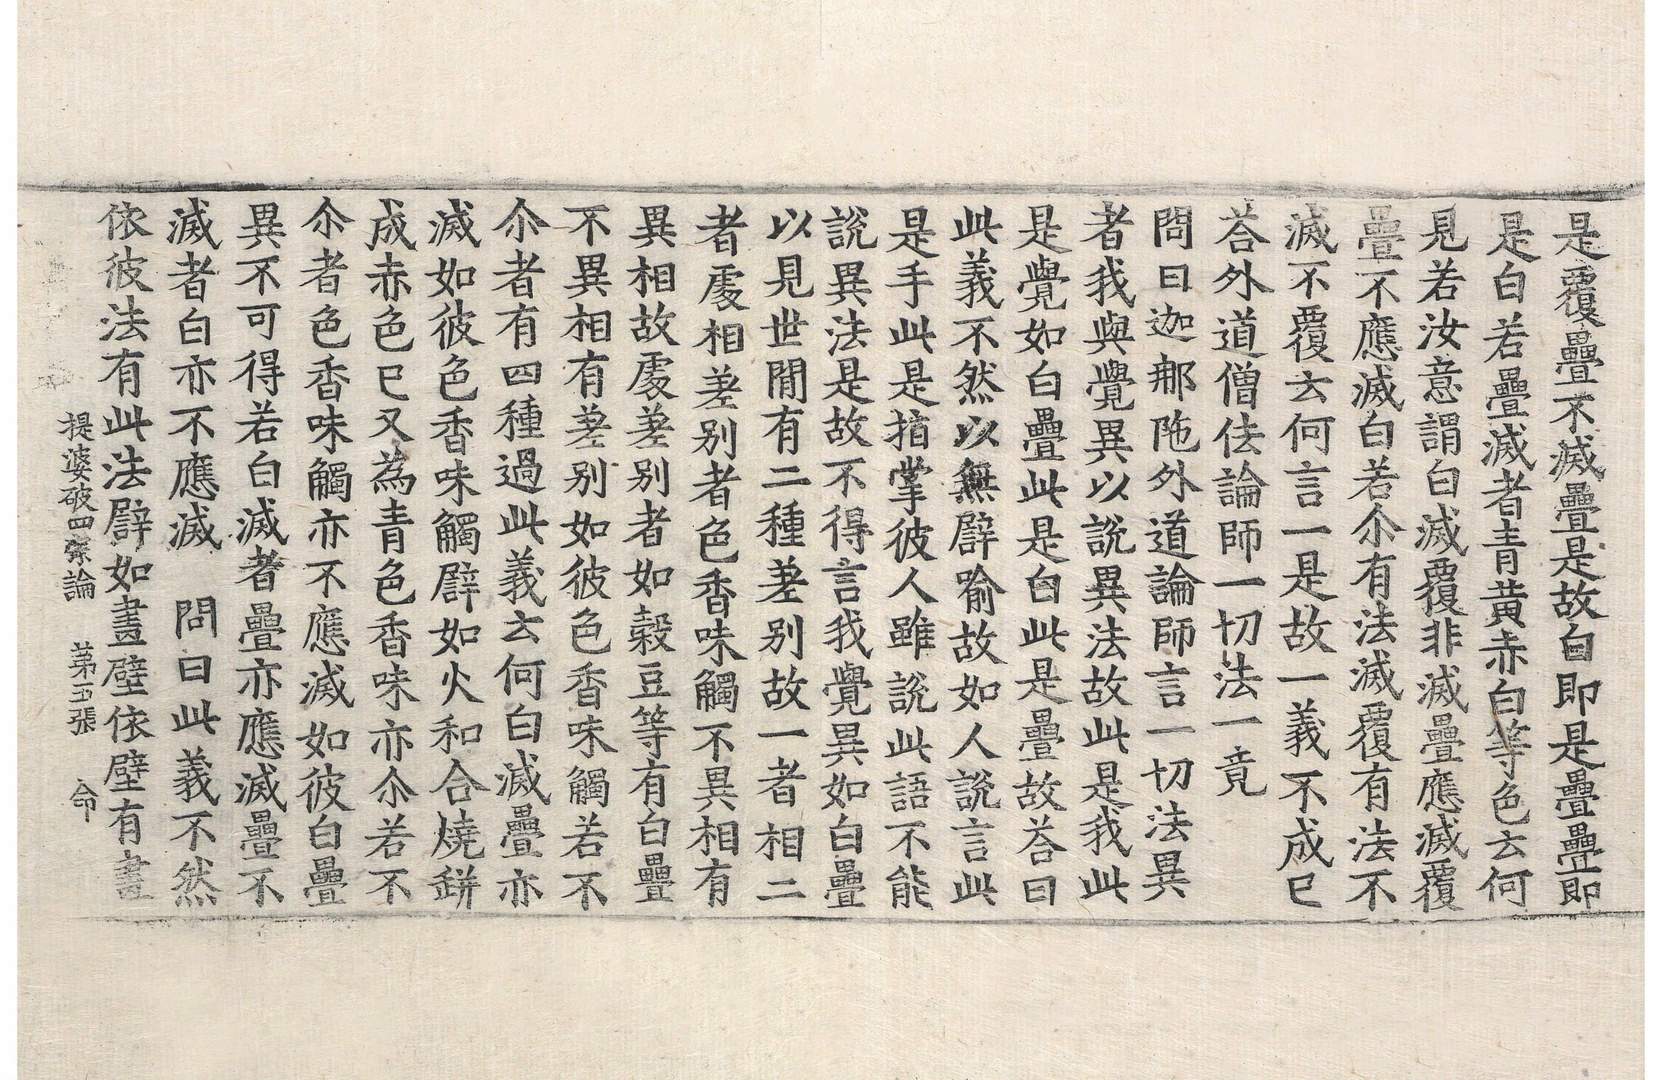 是覆疊不滅疊是故白即是疊疊即
是白若疊滅者青黃赤白等色去何
見若汝意謂白滅覆非滅疊應滅覆
疊不應滅白若尒有法滅覆有法不
滅不覆去何言一是故一義不成已
荅外道僧佉論師一切法一竟
問曰迦那陁外道論師言一切法異
者我與覺異以說異法故此是我此
是覺如白疊此是白此是疊故荅曰
此義不然以無譬喻故如人說言此
是手此是指掌彼人雖說此語不能
說異法是故不得言我覺異如白疊
以見世閒有二種差別故一者相二
者處相差別者色香味觸不異相有
異相故處差別者如穀豆等有白疊
不異相有差別如彼色香味觸若不
尒者有四種過此義去何白滅疊亦
滅如彼色香味觸譬如火和合燒鉼
成赤色已又為青色香味亦尒若不
尒者色香味觸亦不應滅如彼白疊
異不可得若白滅者疊亦應滅疊不
滅者白亦不應滅　問曰此義不然
依彼法有此法譬如畫壁依壁有畫
提婆破四宗論　第五張　命